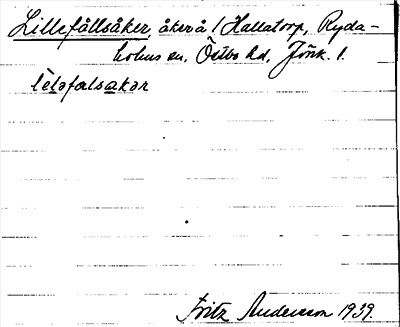 Lillefållsåker, åker å 1 Hallatorp, Ryda-
holms sn, Östbo hd, Jönk. l.
lìləfalsakər
Fritz Andersson 1939.